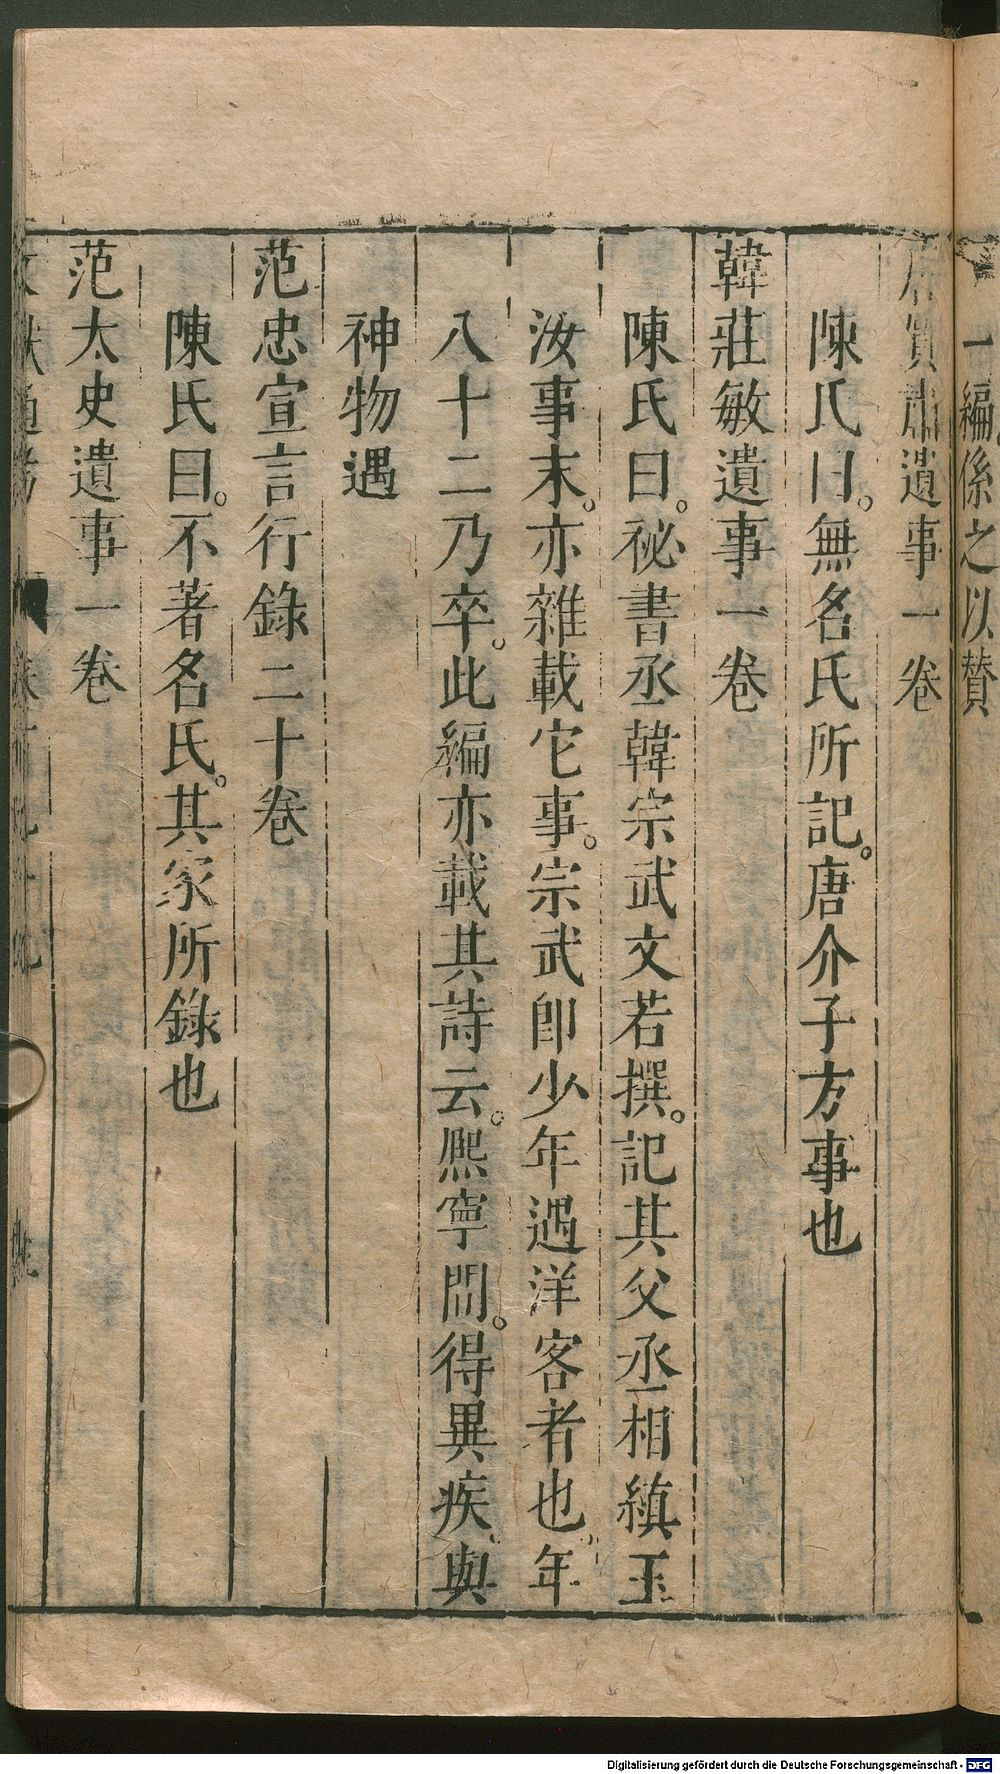 一編係之以贊
唐質肅遺事一卷
陳氏曰。無名氏所記。唐介子方事也
韓莊敏遺事一卷
陳氏曰。祕書丞韓宗武文若撰。記其父丞相縝玉
汝事末。亦雜載它事。宗武卽少年遇洋客者也。年
八十二乃卒。此編亦載其詩云。熈寧間。得異疾、與
神物遇
范忠宣言行錄二十卷
陳氏曰。不著名氏。其家所錄也
范太史遺事一卷
Digitalisierung gefördert durch die Deutsche Forschungsgemeinschaft - DFG